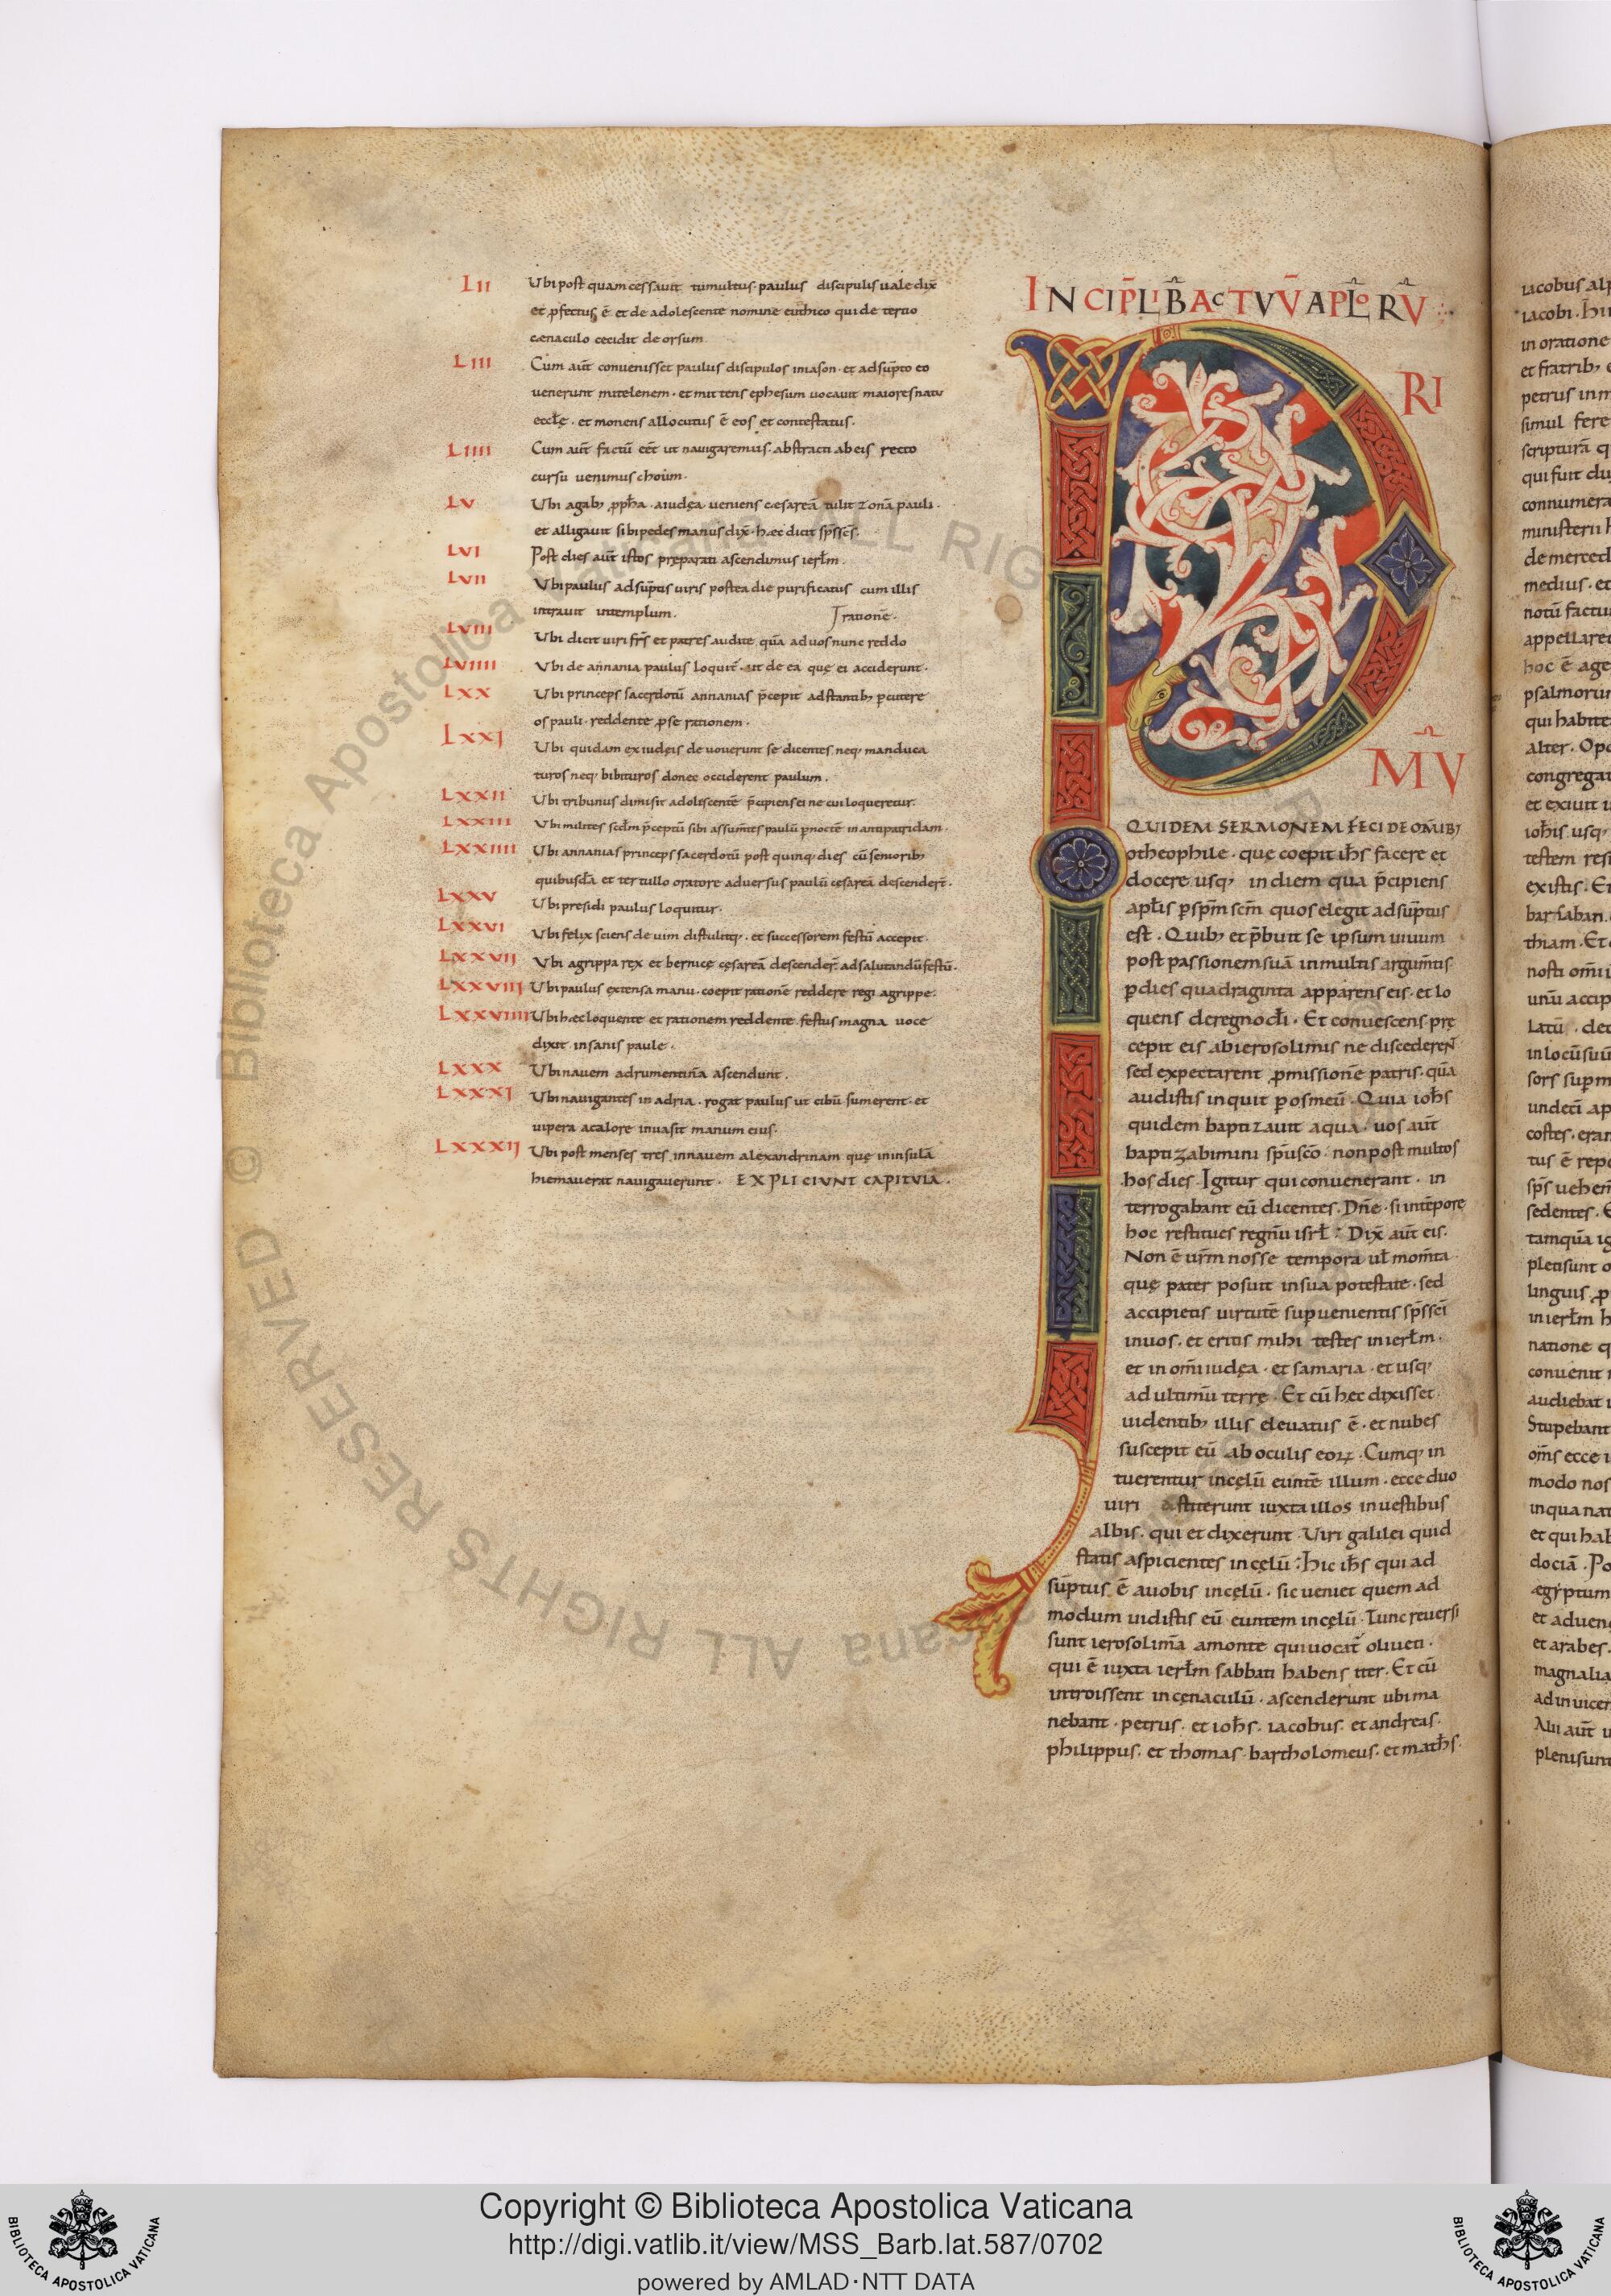 LII Ubi post quam cessavit tumultus · paulus discipulis vale dix̄
et ꝓfectus ē et de adolescente nomine euthico qui de tertio
cænaculo cecidit deorsum
LIII Cum aūt convenisset paulus discipulos in ason · et adsūpto eo
venerunt mitelenem · et mittens ephesum vocavit maiores natu
eccłę · et monens allocutus ē eos et contestatus ·
LIIII Cum aūt factū eēt ut navigaremus · abstracti ab eis recto
cursu venimus choum ·
LV Ubi agabꝫ ꝓpħa · a iudęa veniens cæsareā tulit zonā pauli ·
et alligavit sibi pedes manus dix̄ · hæc dicit sp̄s sc̄s ·
LVI Post dies aūt istos pręparati ascendimus ierłm ·
LVII Ubi paulus adsūptis viris postea die purificatus cum illis
intravit in templum · rationē ·
LVIII Ubi dicit viri fr̄s et patres audite quā ad vos nunc reddo
LVIIII Ubi de annania paulus loquit̄ · ut de ea quę ei acciderunt ·
LXX Ubi princeps sacerdotū annanias p̄cepit adstantibꝫ ꝑcutere
os pauli · reddente ꝓ se rationem ·
LXXI Ubi quidam ex iudęis devoverunt se dicentes neqꝫ manduca
turos neqꝫ bibituros donec occiderent paulum ·
LXXII Ubi tribunus dimisit adolescentē p̄cipiens ei ne cui loqueretur ·
LXXIII Ubi milites sc̄dm p̄ceptū sibi assumētes paulū ꝑ noctē in antipatridam ·
LXXIIII Ubi annanias princeps sacerdotū post quinqꝫ dies cū senioribꝫ
quibusdā et tertullo oratore adversus paulū cęsareā descender̄t ·
LXXV Ubi presidi paulus loquitur ·
LXXVI Ubi felix sciens de vim distulitqꝫ · et successorem festū accepit ·
LXXVII Ubi agrippa rex et bernicę cęsareā descender̄ · ad salutandū festū ·
LXXVIII Ubi paulus extensa manu · coepit rationē reddere regi agrippe ·
LXXVIIII Ubi hæc loquente et rationem reddente festus magna voce
dixit insanis paule ·
LXXX Ubi navem adrumentinā ascendunt ·
LXXXI Ubi navigantes in adria · rogat paulus ut cibū sumerent · et
vipera a calore invasit manum eius ·
LXXXII Ubi post menses tres in navem alexandrinam quę in insulā
hiemaverat navigaverunt · EXPLICIUNT CAPITULA ·
INCIP̄ LIB̄ ACTVV̄ APŁORV̄
PRI
MV̄
QUIDEM SERMONEM FECI DE OM̄IBꝫ
o theophile · quę coepit iħs facere et
docere usqꝫ in diem qua p̄cipiens
apłis ꝑ sp̄m sc̄m quos elegit adsūptus
est · Quibꝫ et p̄buit se ipsum vivum
post passionem suā in multis argum̄tis
ꝑ dies quadraginta apparens eis · et lo
quens de regno di · Et convescens prę
cepit eis ab ierosolimis ne discederent
sed expectarent ꝓmissionē patris · quā
audistis inquit ꝑ os meū · Quia ioħs
quidem baptizavit aqua · vos aūt
baptizabimini sp̄u sc̄o · non post multos
hos dies · Igitur qui convenerant · in
terrogabant eū dicentes · Dn̄e · si in tēpore
hoc restitues regnū isrł : Dix̄ aūt eis ·
Non ē vr̄m nosse tempora vł mom̄ta ·
quę pater posuit in sua potestate · sed
accipietis virtutē supvenientis sp̄s sc̄i
in vos · et eritis mihi testes in ierłm ·
et in om̄i iudęa · et samaria · et usqꝫ
ad ultimū terrę · Et cū hec dixisset ·
videntibꝫ illis elevatus ē · et nubes
suscepit eū ab oculis eoꝝ · Cumqꝫ in
tuerentur in cęlū euntē illum · ecce duo
viri astiterunt iuxta illos in vestibus
albis · qui et dixerunt · Viri galilei quid
statis aspicientes in cęlū : Hic iħs qui ad
sūptus ē a vobis in cęlū · sic veniet quem ad
modum vidistis eū euntem in cęlū · Tunc reversi
sunt ierosolimā a monte qui vocat̄ oliveti ·
qui ē iuxta ierłm sabbati habens iter · Et cū
introissent in cęnaculū · ascenderunt ubi ma
nebant · petrus · et ioħs · iacobus · et andreas ·
philippus · et thomas · bartholomeus · et matħs ·
iacobus alp
iacobi · 
in oratione
et fratribꝫ
petrus in m
simul fere
scripturā q
qui fuit du
connumera
ministerii h
de merced
medius · et
notū factu
appellaret
hoc ē age
psalmorum
qui habite
alter · Opo
congregati
et exivit
ioħis usqꝫ
testem res
existis · Et
barsaban ·
thiam · Et
nosti om̄i
unū accip
Latū · de
in locū suū
sors sup m
undeci ap
costes · eran
tus ē repe
sp̄s vehem
sedentes ·
tamquā ig
pleti sunt
linguis ꝓ
in ierłm h
natione q
convenit
audiebat
Stupebant
om̄s ecce
modo nos
in qua nat
et qui hab
dociā · Po
ægyptum
et adven
et arabes ·
magnalia
ad invicem
Alii aūt
pleni sunt
Biblioteca Apostolica Vaticana ALL RIGHTS RESERVED ©
Copyright © Biblioteca Apostolica Vaticana
http://digi.vatlib.it/view/MSS_Barb.lat.587/0702
powered by AMLAD · NTT DATA
BIBLIOTECA APOSTOLICA VATICANA
BIBLIOTECA APOSTOLICA VATICANA